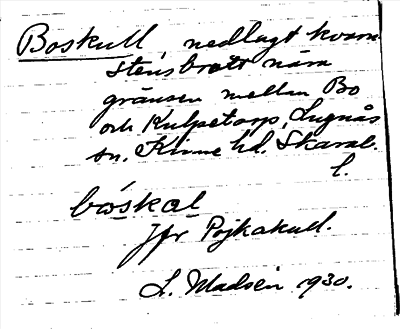 Boskull, nedlagt kvarn
stensbrott nära
gränsen mellan Bo
och Kulpetorp, Lugnås
sn. Kinne hd. Skarab.
l.
bọ́skal
Jfr Pojkakull.
L. Madsén 1930.